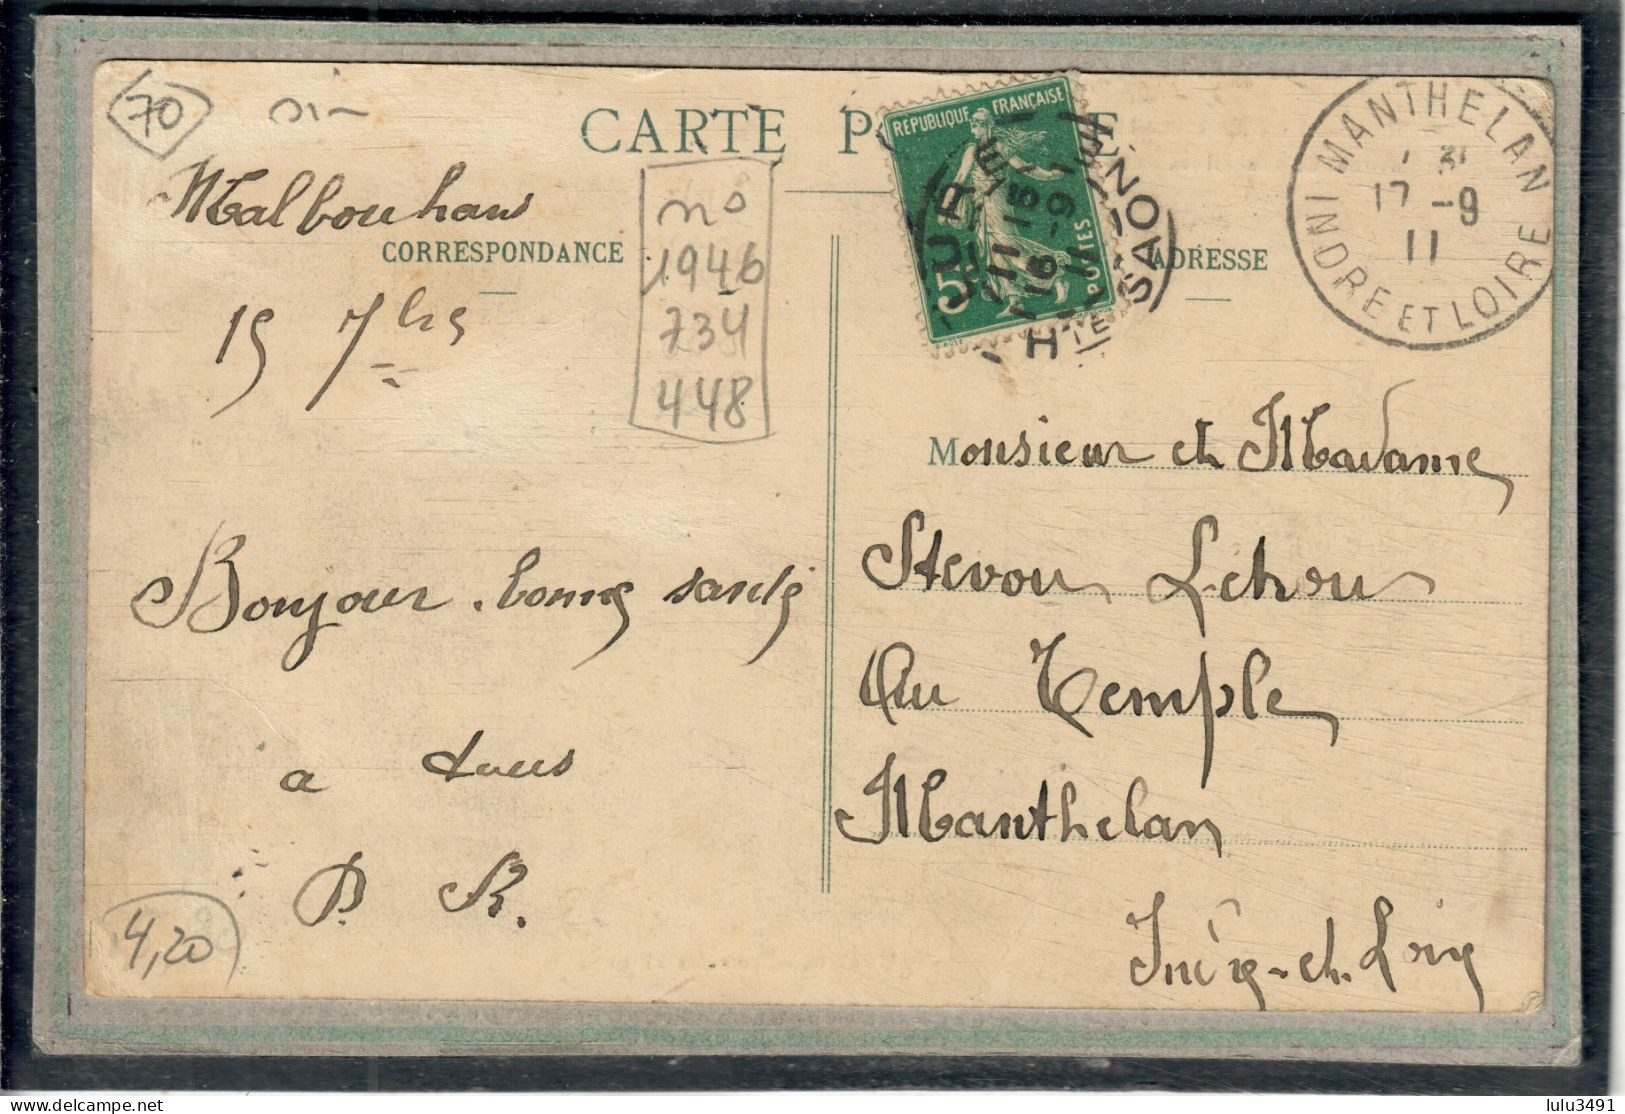 70
CARTE P
Malbouhans
CORRESPONDANCE
15 7bre
n°
1946
734
448
RÉPUBLIQUE FRANÇAISE
5c
POSTES
LURE
15
16 -9
11
HTE SAONE
ADRESSE
MANTHELAN
17 -9
11
INDRE ET LOIRE
Monsieur et Madame
Au Temple
Manthelan
Indre-et-Loire
Bonjour. bonne santé
a tous
P. R.
4,20
lulu3491